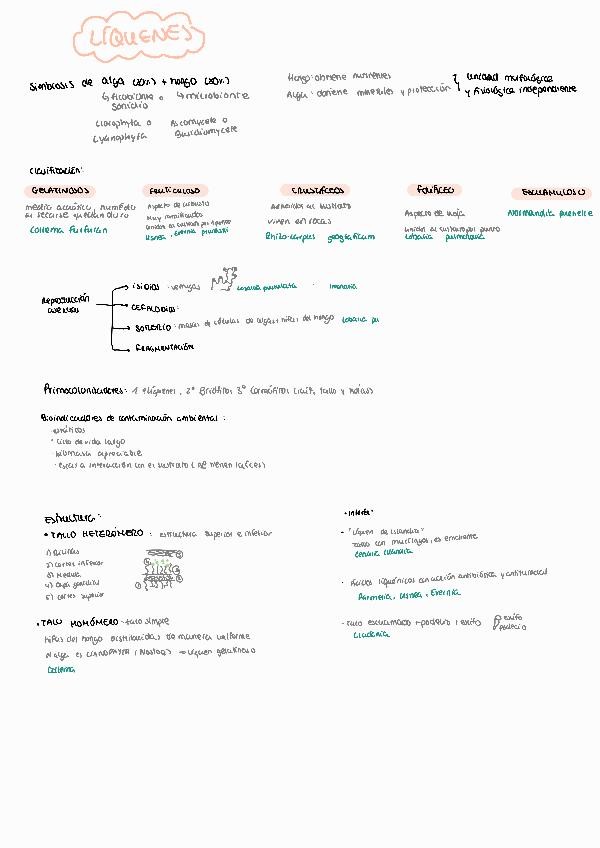 LÍQUENES
Simbiosis de alga (20%) + hongo (80%)
↳ ficobionte o ↳ micobionte
gonidio
Clorophyta o Ascomycete o
Cyanophyta Basidiomycete
Hongo: obtiene nutrientes
Alga: obtiene minerales y protección
unidad morfológica
y fisiológica independiente
Clasificación:
GELATINOSOS
medio acuático, húmedo
al secarse quedan duro
Collema furfuran
FRUTICULOSO
Aspecto de arbusto
Muy ramificados
unidos al sustrato por 1 punto
Usnea, Evernia prunastri
CRUSTÁCEOS
Adheridos al sustrato
viven en rocas
Rhizocarpus geograficum
FOLIÁCEO
Aspecto de hoja
unidos al sustrato por punto
Lobaria pulmonaria
ESCUAMULOSO
Normandina pulchella
Reproducción
asexual
ISIDIOS: verrugas
CEFALODIOS:
SOREDIO: masas de células de algas e hifas del hongo
FRAGMENTACIÓN
Primocolonizadores: 1º líquenes, 2º Briófitos 3º Cormófitos (raíz, tallo y hojas)
Bioindicadores de contaminación ambiental:
· estáticos
· Ciclo de vida largo
· Biomasa apreciable
· escasa interacción con el sustrato (no tienen raíces)
ESTRUCTURA:
• TALLO HETERÓMERO: estructura superior e inferior
1) Ricinas
2) cortex inferior
3) Medula
4) Capa gonidial
5) cortex superior
• TALO HOMÓMERO: talo simple
Hifas del hongo distribuidas de manera uniforme
Alga es CIANOPHYTA (Nostoc) → líquen gelatinoso
Collema
• Interés:
· "Líquen de Islandia"
talos con mucílagos, es emoliente
Cetraria islandica
· Ácidos liquénicos con acción antibiótica y antitumoral
Parmelia, Usnea, Evernia
· Talo escuamado + podecio + exifo
Cladonia
exifo
podecio